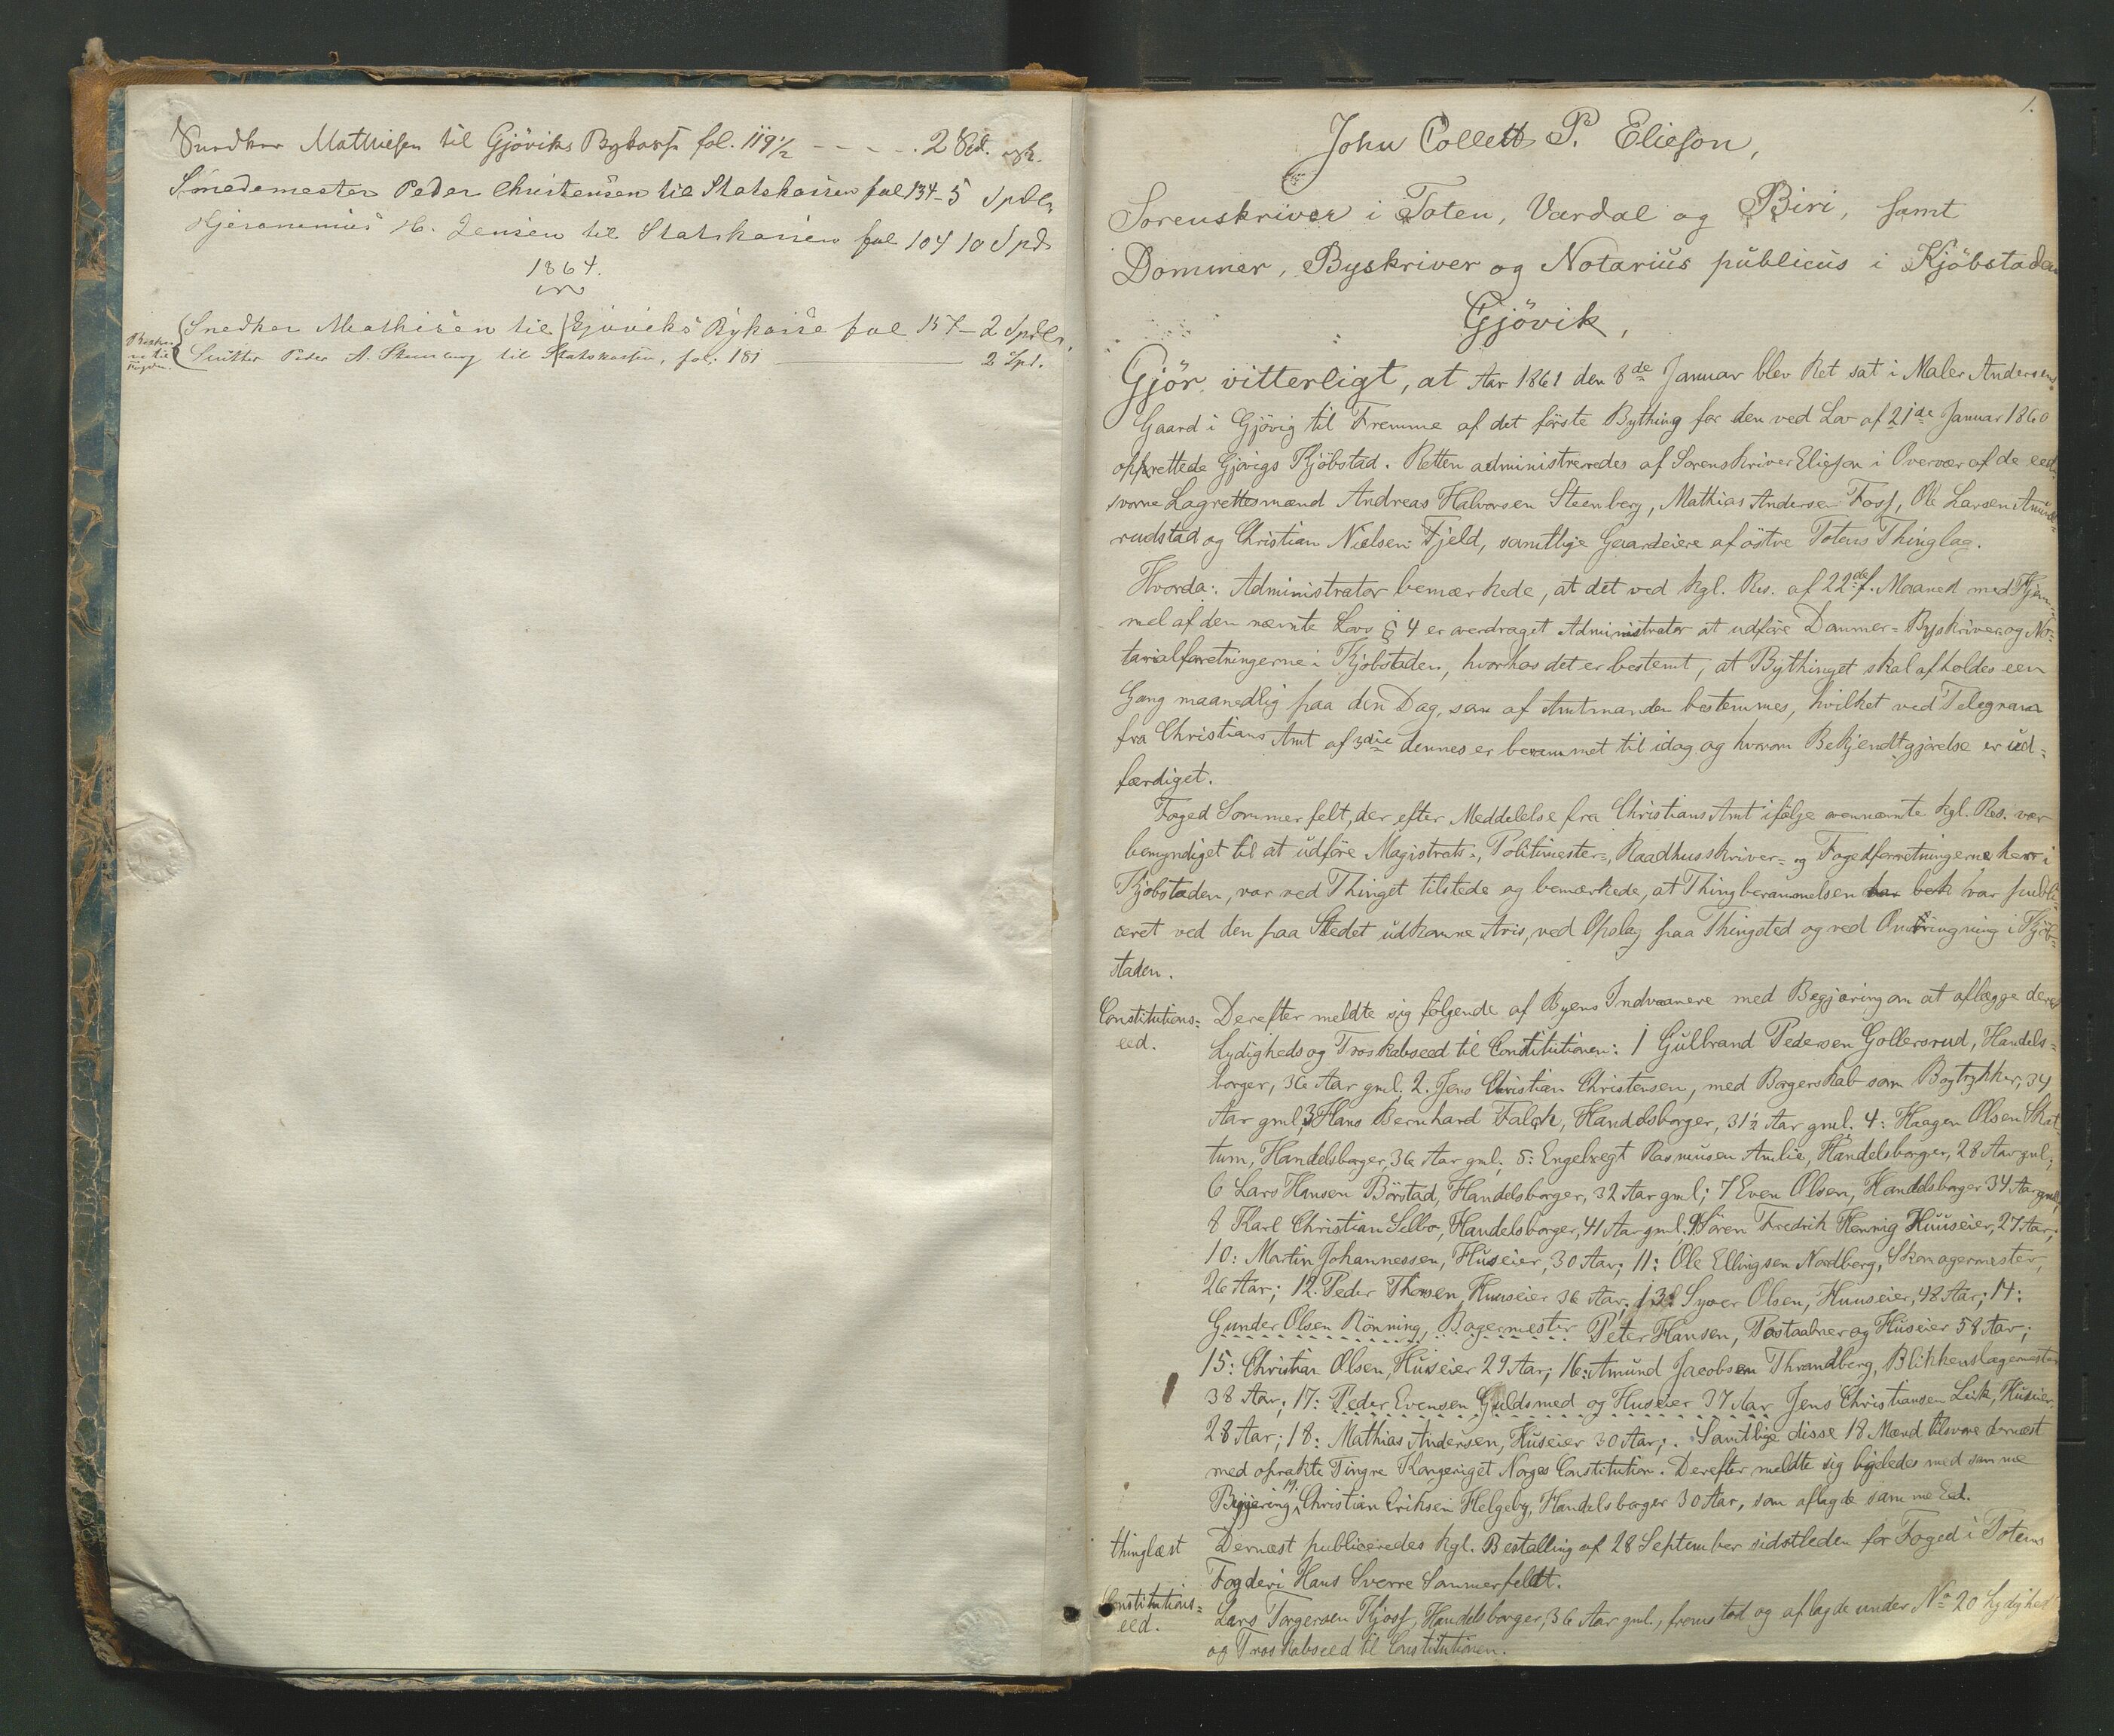 Snedker Mathiesen til Gjöviks Bykasse fol. 119 1/2 - - - - . 2 Spd.
Smedemester Peder Christensen til Statskassen fol 134 - 5 Spdlr
Hjeronimus H. Jensen til Statskassen fol 104 10 Spd
1864.
Snedker Mathisen til Gjöviks Bykasse fol 157 - 2 Spdlr.
Peder A. til Statskassen, fol. 181 2 Spd.
1.
John Collett P. Elieson,
Sorenskriver i Toten, Vardal og Biri, samt
Dommer, Byskriver og Notarius publicus i Kjöbstaden
Gjövik,
Gjör vitterligt, at Aar 1861 den 8de Januar blev Ret sat i Maler Andersens
Gaard i Gjövig til Fremme af det förste Bything for den ved Lov af 21de Januar 1860
opprettede Gjövigs Kjöbstad. Retten administreredes af Sorenskriver Elieson i Overvær af de eed-
svorne Lagrettesmænd Andreas Halvorsen Steenberg, Mathias Andersen Foss, Ole Larsen Amund-
rudstad og Christian Nielsen Fjeld, samtlige Gaardeiere af östre Totens Thinglag.
Hvorda: Administrator bemærkede, at det ved kgl. Res. af 22de f. Maaned med Hjem-
mel af den nævnte Lovs § 4 er overdraget Administrator at udföre Dommer- Byskriver og No-
tarialforretningerne i Kjöbstaden, hvorhos det er bestemt, at Bythinget skal afholdes een
Gang maanedlig paa den Dag, som af Amtmanden bestemmes, hvilket ved Telegram
fra Christians Amt af 3die dennes er berammet til idag og hvorom Bekjendtgjörelse er ud-
færdiget.
Foged Sommerfelt, der efter Meddelelse fra Christians Amt ifölge ovennævnte kgl. Res. var
bemyndiget til at udföre Magistrats-, Politimester-, Raadhusskriver- og Fogedforretningerne her i
Kjöbstaden, var ved Thinget tilstede og bemærkede, at Thingberammelsen har bek var publi-
ceret ved den paa Stedet udkomne Avis, ved Opslag paa Thingsted og ved Omringning i Kjöb-
staden.
Constitutions-
eed.
Derefter meldte sig fölgende af Byens Indvaanere med Begjæring om at aflægge deres
Lydigheds og Troskabseed til Constitutionen: 1 Gulbrand Pedersen Gollersrud, Handels-
borger, 36 Aar gml. 2. Jens Christian Christensen, med Borgerskab som Bogtrykker, 34
Aar gml; 3 Hans Bernhard Falck, Handelsborger, 31 1/2 Aar gml. 4: Haagen Olsen Skat-
tum, Handelsborger, 36 Aar gml; 5: Engelregt Rasmusen Amlie, Handelsborger, 28 Aar gml;
6 Lars Hansen Börstad, Handelsborger, 32 Aar gml; 7 Even Olsen, Handelsborger 34 Aar gml,
8 Karl Christian Selbo, Handelsborger, 41 Aar gml. 9 Sören Fredrik Hennig Huuseier, 27 Aar;
10: Martin Johannessen, Huseier, 30 Aar; 11: Ole Ellingsen Nordberg, Skomagermester,
26 Aar; 12. Peder Thorsen, Huuseier 36 Aar; 13: Syver Olsen, Huuseier, 48 Aar; 14:
Gunder Olsen Rönning, Bagermester Peter Hansen, Postaabner og Huseier 58 Aar;
15: Christian Olsen, Huseier 29 Aar; 16: Amund Jacobsen Thrandberg, Blikkenslagermester
38 Aar; 17: Peder Evensen Guldsmed og Huseier 37 Aar Jens Christiansen Lick, Huseier,
28 Aar; 18: Mathias Andersen, Huseier 30 Aar;. Samtlige disse 18 Mænd tilsvore dernæst
med oprakte Fingre Kongeriget Norges Constitution. Derefter meldte sig ligeledes med samme
Begjæring 19. Christian Eriksen Helgeby, Handelsborger 30 Aar, som aflagde samme Eed.
thinglæst
Dernæst publiceredes kgl. Bestalling af 28 September sidstleden for Foged i Totens
Fogderi Hans Sverre Sommerfeldt.
Constitutions-
eed.
Lars Torgersen Kjoss, Handelsborger, 36 Aar gml., fremstod og aflagde under No 20 Lydigheds
og Troskabseed til Constitutionen.